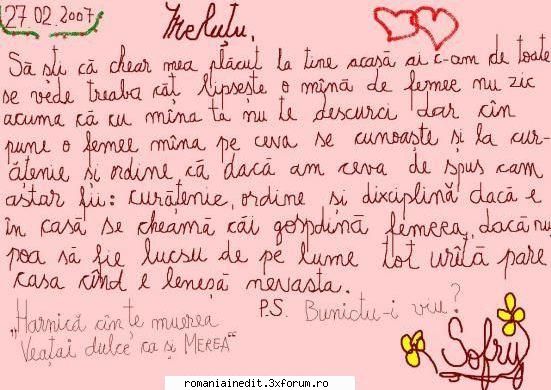 27.02.2007
Melutu,
Să sti că chear mea plăcut la tine acasă ai c-am de toate
se vede treaba căt lipseste o mînă de femee nu zic
acuma că cu mîna ta nu te descurci dar cîn
pune o femee mîna pe ceva se cunoaste si la cur-
ătenie si ordine, că dacă am ceva de spus cam
astar fii: curătenie, ordine si dixciplină dacă e
în casă se cheamă căi gospdină femeea, dacă nu
poa să fie lucsu de pe lume tot urîtă pare
casa cînd e lenesă nevasta.
P.S. Bunictu-i viu?
„Harnică cîn te muerea
Veatai dulce ca si MEREA“
Sofru
romaniainedit.3xforum.ro